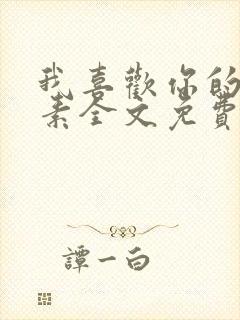 我喜歡你的
素全文免費
譚一白